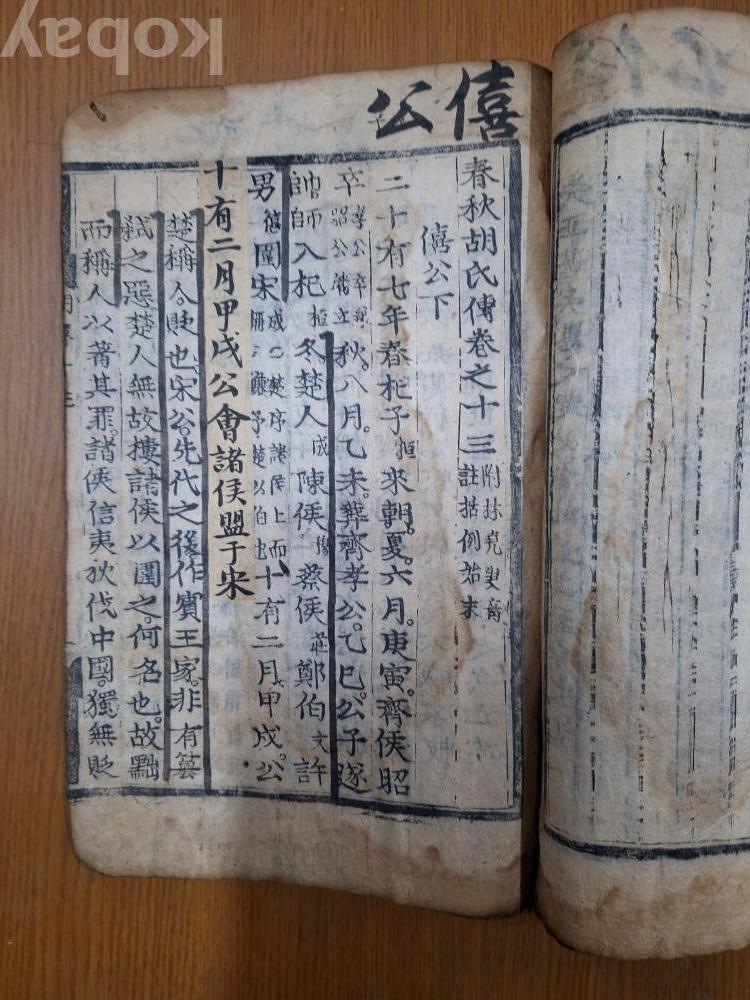 kobay
僖公
春秋胡氏傳卷之十三 附林堯叟音註括例始末
僖公下
二十有七年春杞子桓來朝。夏。六月。庚寅。齊侯昭
卒 孝公卒 昭公潘立 秋。八月。乙未。葬齊孝公。乙巳。公子遂
帥師入杞桓 冬楚人成陳侯穆蔡侯莊鄭伯文許
男僖圍宋成 楚序諸侯上而 予楚以伯也 十有二月。甲戌。公
十有二月甲戌公會諸侯盟于宋
楚稱人貶也宋公。先代之後作賓王家。非有簒
弑之惡楚人無故摟諸侯以圍之。何名也。故黜
而稱人以著其罪。諸侯信夷狄伐中國。獨無貶